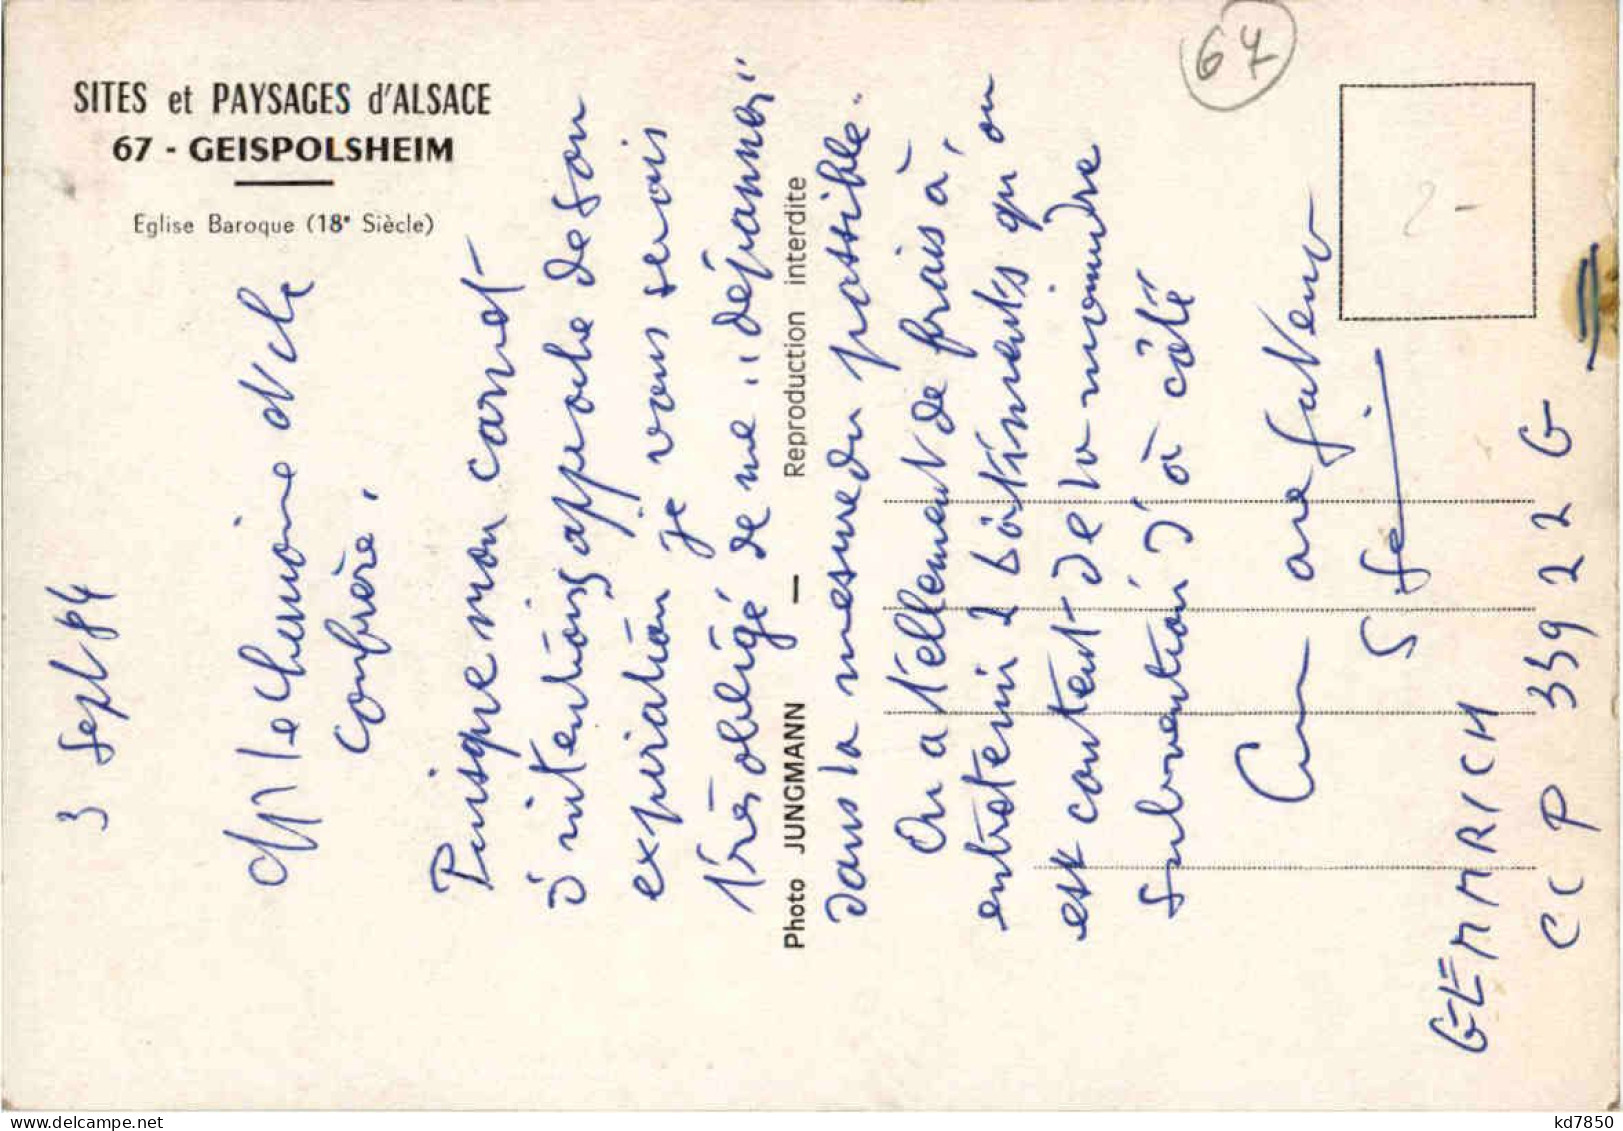 SITES et PAYSAGES d'ALSACE
67 - GEISPOLSHEIM
Eglise Baroque (18e Siècle)
67
2-
Photo JUNGMANN — Reproduction interdite
3 Sept 84
le Chanoine et ch
Confrère,
Puisque mon carnet
d'intentions approche de son
expiration je vous serais
très obligé de me "dépanner"
dans la mesure du possible.
On a tellement de frais à,
entretenir 2 bâtiments qu'on
est content de la moindre
subvention d'à côté
Cum
GEMMRICH
CCP 33922 G
kd7850